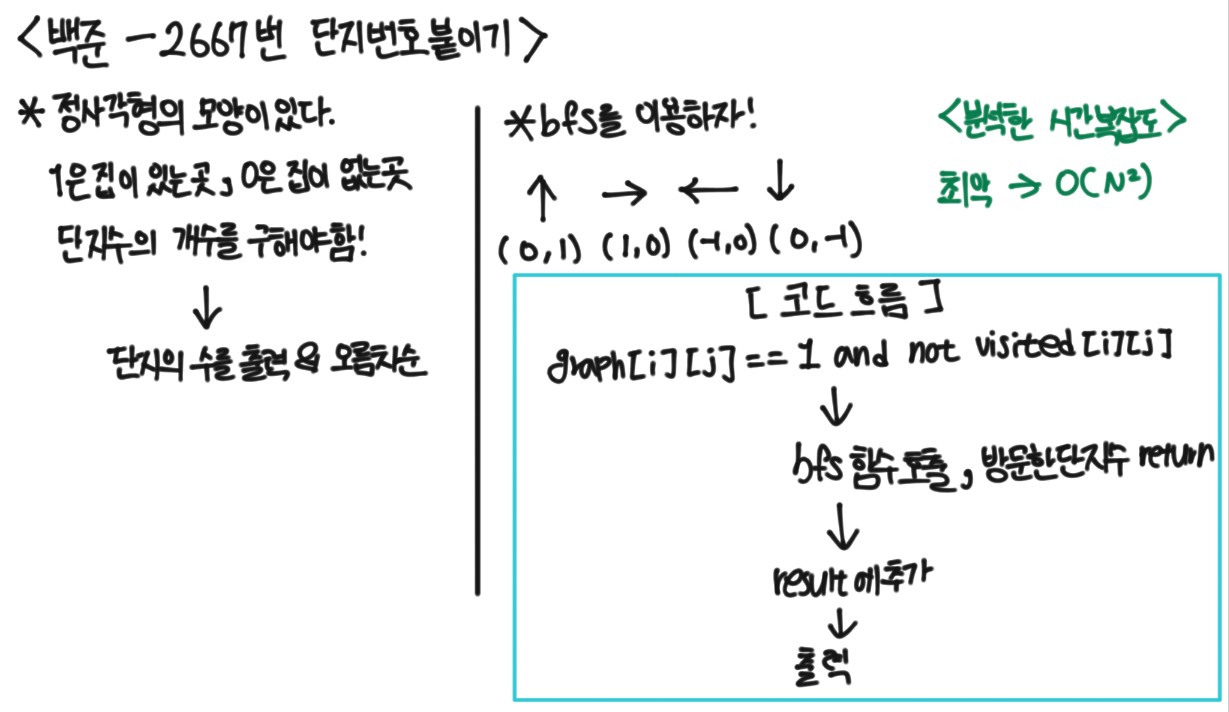 <백준 - 2667번 단지번호붙이기>
* 정사각형의 모양이 있다.
1은 집이 있는곳, 0은 집이 없는곳
단지수의 개수를 구해야함!
↓
단지의 수를 출력 & 오름차순
* bfs를 이용하자!
↑ → ← ↓
(0,1) (1,0) (-1,0) (0,-1)
<분석한 시간복잡도>
최악 → O(N²)
[코드 흐름]
graph[i][j] == 1 and not visited[i][j]
↓
bfs 함수 호출, 방문한 단지수 return
↓
result에 추가
↓
출력